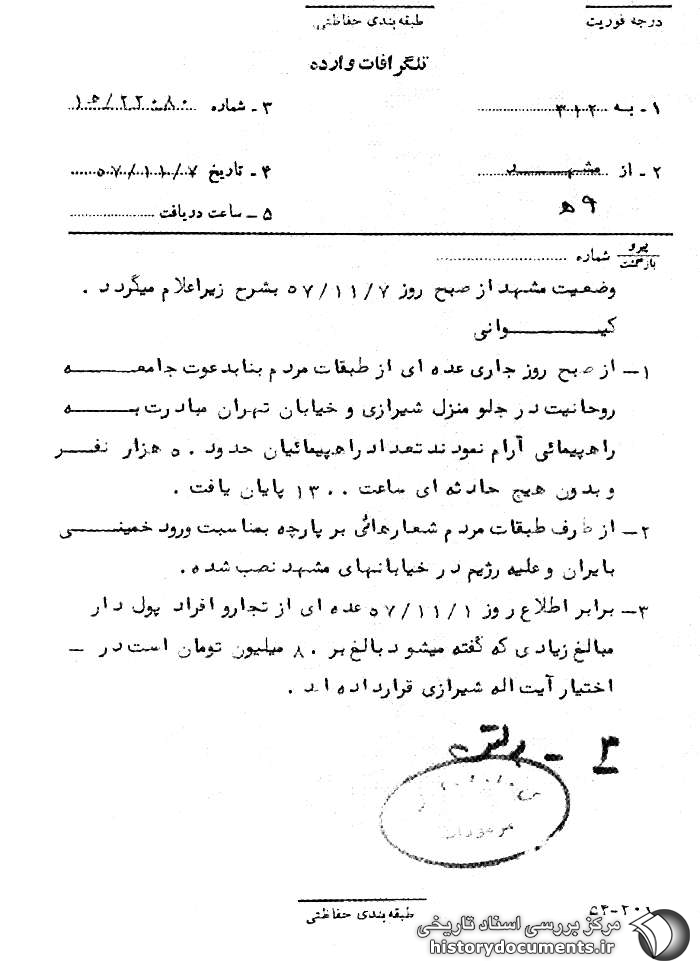 درجه فوریت
طبقه‌بندی حفاظتی
تلگرافات وارده
۱ـ به ۳۱۲
۳ـ شماره ۱۵/۲۲۰۸۰
۲ـ از مشهـد
۴ـ تاریخ ۵۷/۱۱/۷
۵۹
۵ـ ساعت دریافت
پیرو
بازگشت شماره
وضعیت مشهد از صبح روز ۵۷/۱۱/۷ بشرح زیر اعلام میگردد .
کیـــوانی
۱ـ از صبح روز جاری عده ای از طبقات مردم بنابدعوت جامعـــه
روحانیت در جلو منزل شیرازی و خیابان تهران مبادرت بـــه
راهپیمائی آرام نمودند تعداد راهپیمائیان حدود ۵۰ هزار نفـر
و بدون هیچ حادثه ای ساعت ۱۳۰۰ پایان یافت .
۲ـ از طرف طبقات مردم شعارهائی بر پارچه بمناسبت ورود خمینـــی
بایران و علیه رژیم در خیابانهای مشهد نصب شده .
۳ـ برابر اطلاع روز ۵۷/۱۱/۱ عده ای از تجارو افراد پول دار
مبالغ زیادی که گفته میشود بالغ بر ۸۰ میلیون تومان است در ـ
اختیار آیت اله شیرازی قرارداده اند .
۳ ـ
طبقه‌بندی حفاظتی
۲۰۱-
مرکز بررسی اسناد تاریخی
historydocuments.ir